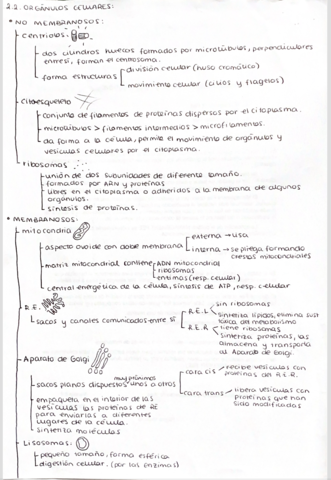 2.2. ORGÁNULOS CELULARES:
• NO MEMBRANOSOS:
centriolos:
dos cilindros huecos formados por microtúbulos, perpendiculares
entre sí, forman el centrosoma.
forma estructuras
división celular (huso cromático)
movimiento celular (cilios y flagelos)
citoesqueleto
conjunto de filamentos de proteínas dispersos por el citoplasma.
microtúbulos > filamentos intermedios > microfilamentos.
da forma a la célula, permite el movimiento de orgánulos y
vesículas celulares por el citoplasma.
ribosomas
unión de dos subunidades de diferente tamaño.
formados por ARN y proteínas
libres en el citoplasma o adheridos a la membrana de algunos
orgánulos.
síntesis de proteínas.
• MEMBRANOSOS:
mitocondria
aspecto ovoide con doble membrana
externa → lisa
interna → se pliega formando
crestas mitocondriales
matriz mitocondrial contiene
ADN mitocondrial
ribosomas
enzimas (resp. celular)
central energética de la célula, síntesis de ATP, resp. celular
R.E.
sacos y canales comunicados entre sí
R.E.L
sin ribosomas
sintetiza lípidos, elimina sust
tóxica del metabolismo
R.E.R
tiene ribosomas
sintetiza proteínas, las
almacena y transporta
al Aparato de Golgi.
Aparato de Golgi
sacos planos dispuestos muy próximos unos a otros
cara cis → recibe vesículas con
proteínas del R.E.R.
cara trans → libera vesículas con
proteínas que han
sido modificadas
empaqueta en el interior de las
vesículas las proteínas de RE
para enviarlas a diferentes
lugares de la célula.
sintetiza moléculas
Lisosomas:
pequeño tamaño, forma esférica
digestión celular. (por las enzimas)